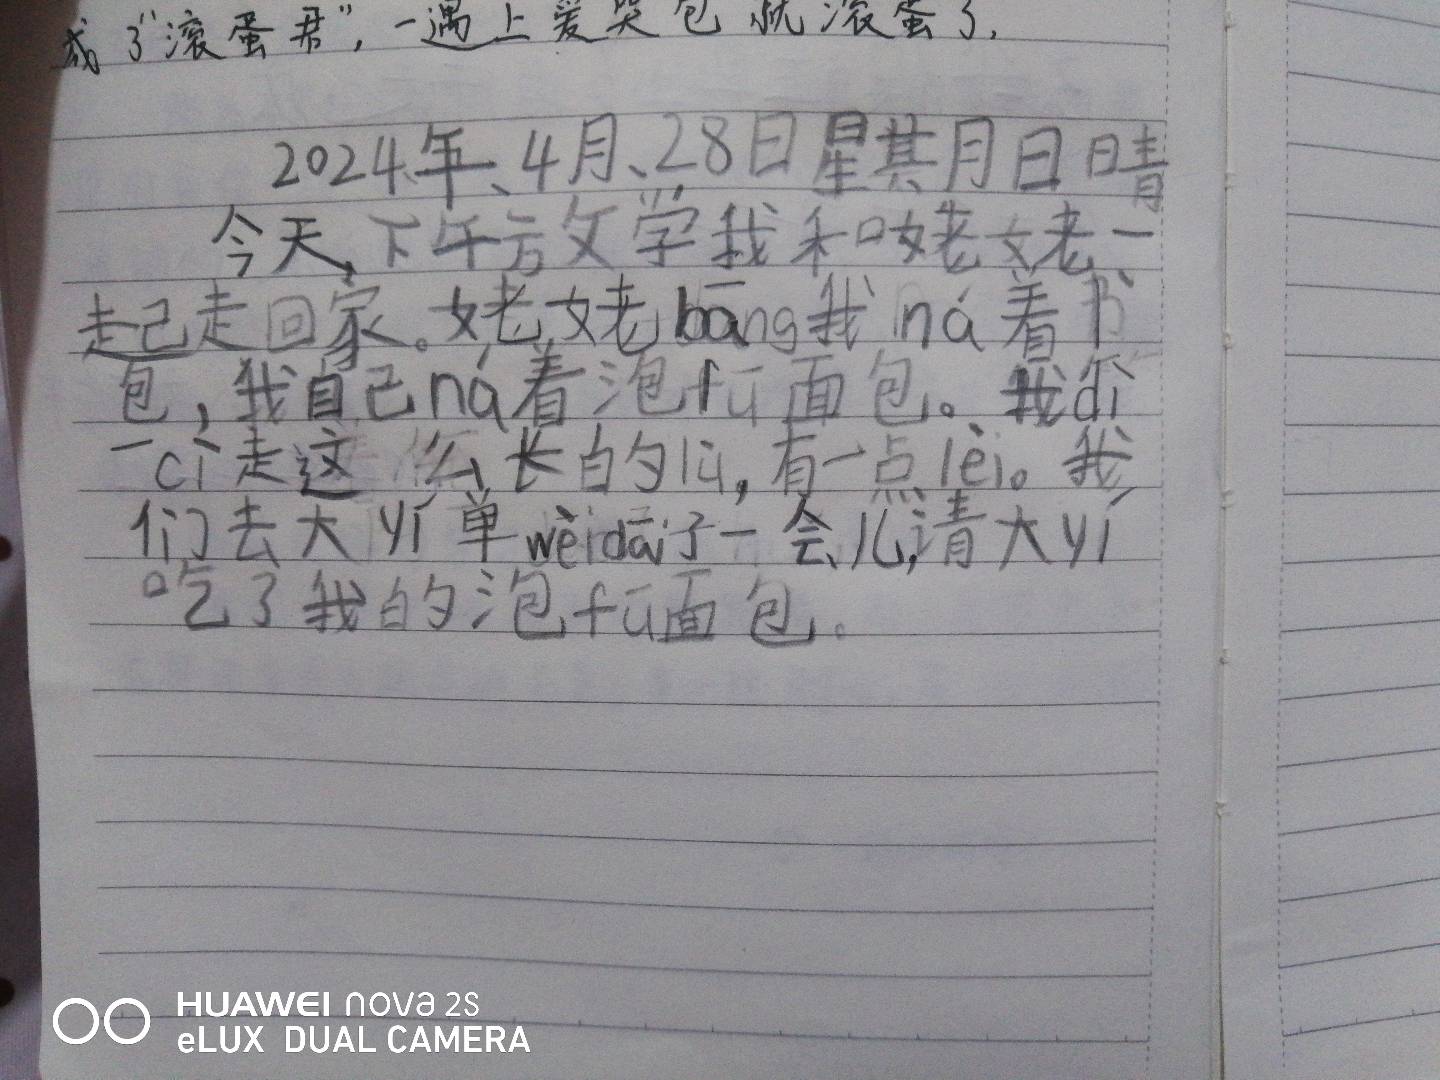 成了“滚蛋君”，一遇上爱哭包就滚蛋了.
2024年、4月、28日星其月日日晴
今天,下午方文学我和口姥姥一
起己走回家。姥姥bāng我ná着书
包，我自己ná着泡fū面包。我dì
一cì走这么长的lù，有一点lèi。我
们去大yí单wèidāi了一会儿,请大yí
吃了我的泡fū面包。
HUAWEI nova 2S
eLUX DUAL CAMERA